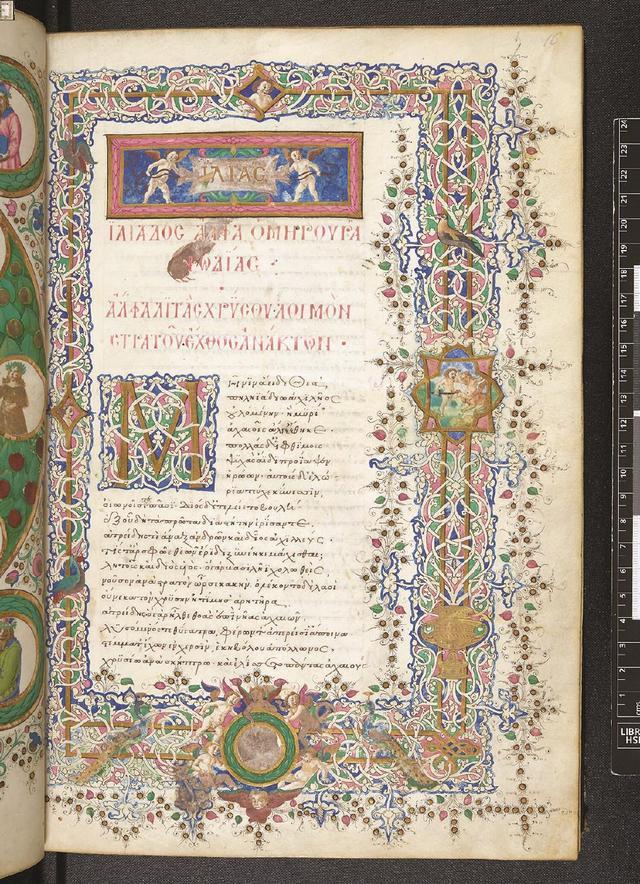 16
ΙΛΙΑΣ
ΙΛΙΑΔΟΣ ΑΛΦΑ ΟΜΗΡΟΥ ΡΑ
ΨΩΔΙΑΣ :
ΑΛΦΑ ΛΙΤΑΣ ΧΡΥΣΟΥ· ΛΟΙΜΟΝ
ΣΤΡΑΤΟΥ· ΕΧΘΟΣ ΑΝΑΚΤΩΝ ·
Μῆνιν ἄειδε θεὰ
πηληιάδεω ἀχιλῆος
οὐλομένην· ἣ μυρί
ἀχαιοῖς ἄλγε' ἔθηκε·
πολλὰς δ' ἰφθίμους
ψυχὰς ἄϊδι προΐαψεν
ἡρώων· αὐτοὺς δὲ ἑλώ
ρια τεῦχε κύνεσσιν
οἰωνοῖσί τε πᾶσι· Διὸς δ' ἐτελείετο βουλή·
Ἐξ οὗ δὴ τὰ πρῶτα διαστήτην ἐρίσαντε
ἀτρείδης τε ἄναξ ἀνδρῶν καὶ δῖος ἀχιλλεύς
Τίς τ' ἄρ σφῶε θεῶν ἔριδι ξυνέηκε μάχεσθαι
Λητοῦς καὶ διὸς υἱός· ὁ γὰρ βασιλῆι χολωθεὶς
νοῦσον ἀνὰ στρατὸν ὦρσε κακήν· ὀλέκοντο δὲ λαοί
οὕνεκα τὸν χρύσην ἠτίμησ' ἀρητῆρα
ἀτρείδης· ὁ γὰρ ἦλθε θοὰς ἐπὶ νῆας ἀχαιῶν
λυσόμενός τε θύγατρα· φέρων τ' ἀπερείσι' ἄποινα
στέμματ' ἔχων ἐν χερσὶν· ἑκηβόλου ἀπόλλωνος·
χρυσέῳ ἀνὰ σκήπτρῳ· καὶ ἐλίσσετο πάντας ἀχαιούς
24
23
22
21
20
19
18
17
16
15
14
13
12
11
10
9
8
7
6
5
4
3
2
1
cms
LIBR
HSI